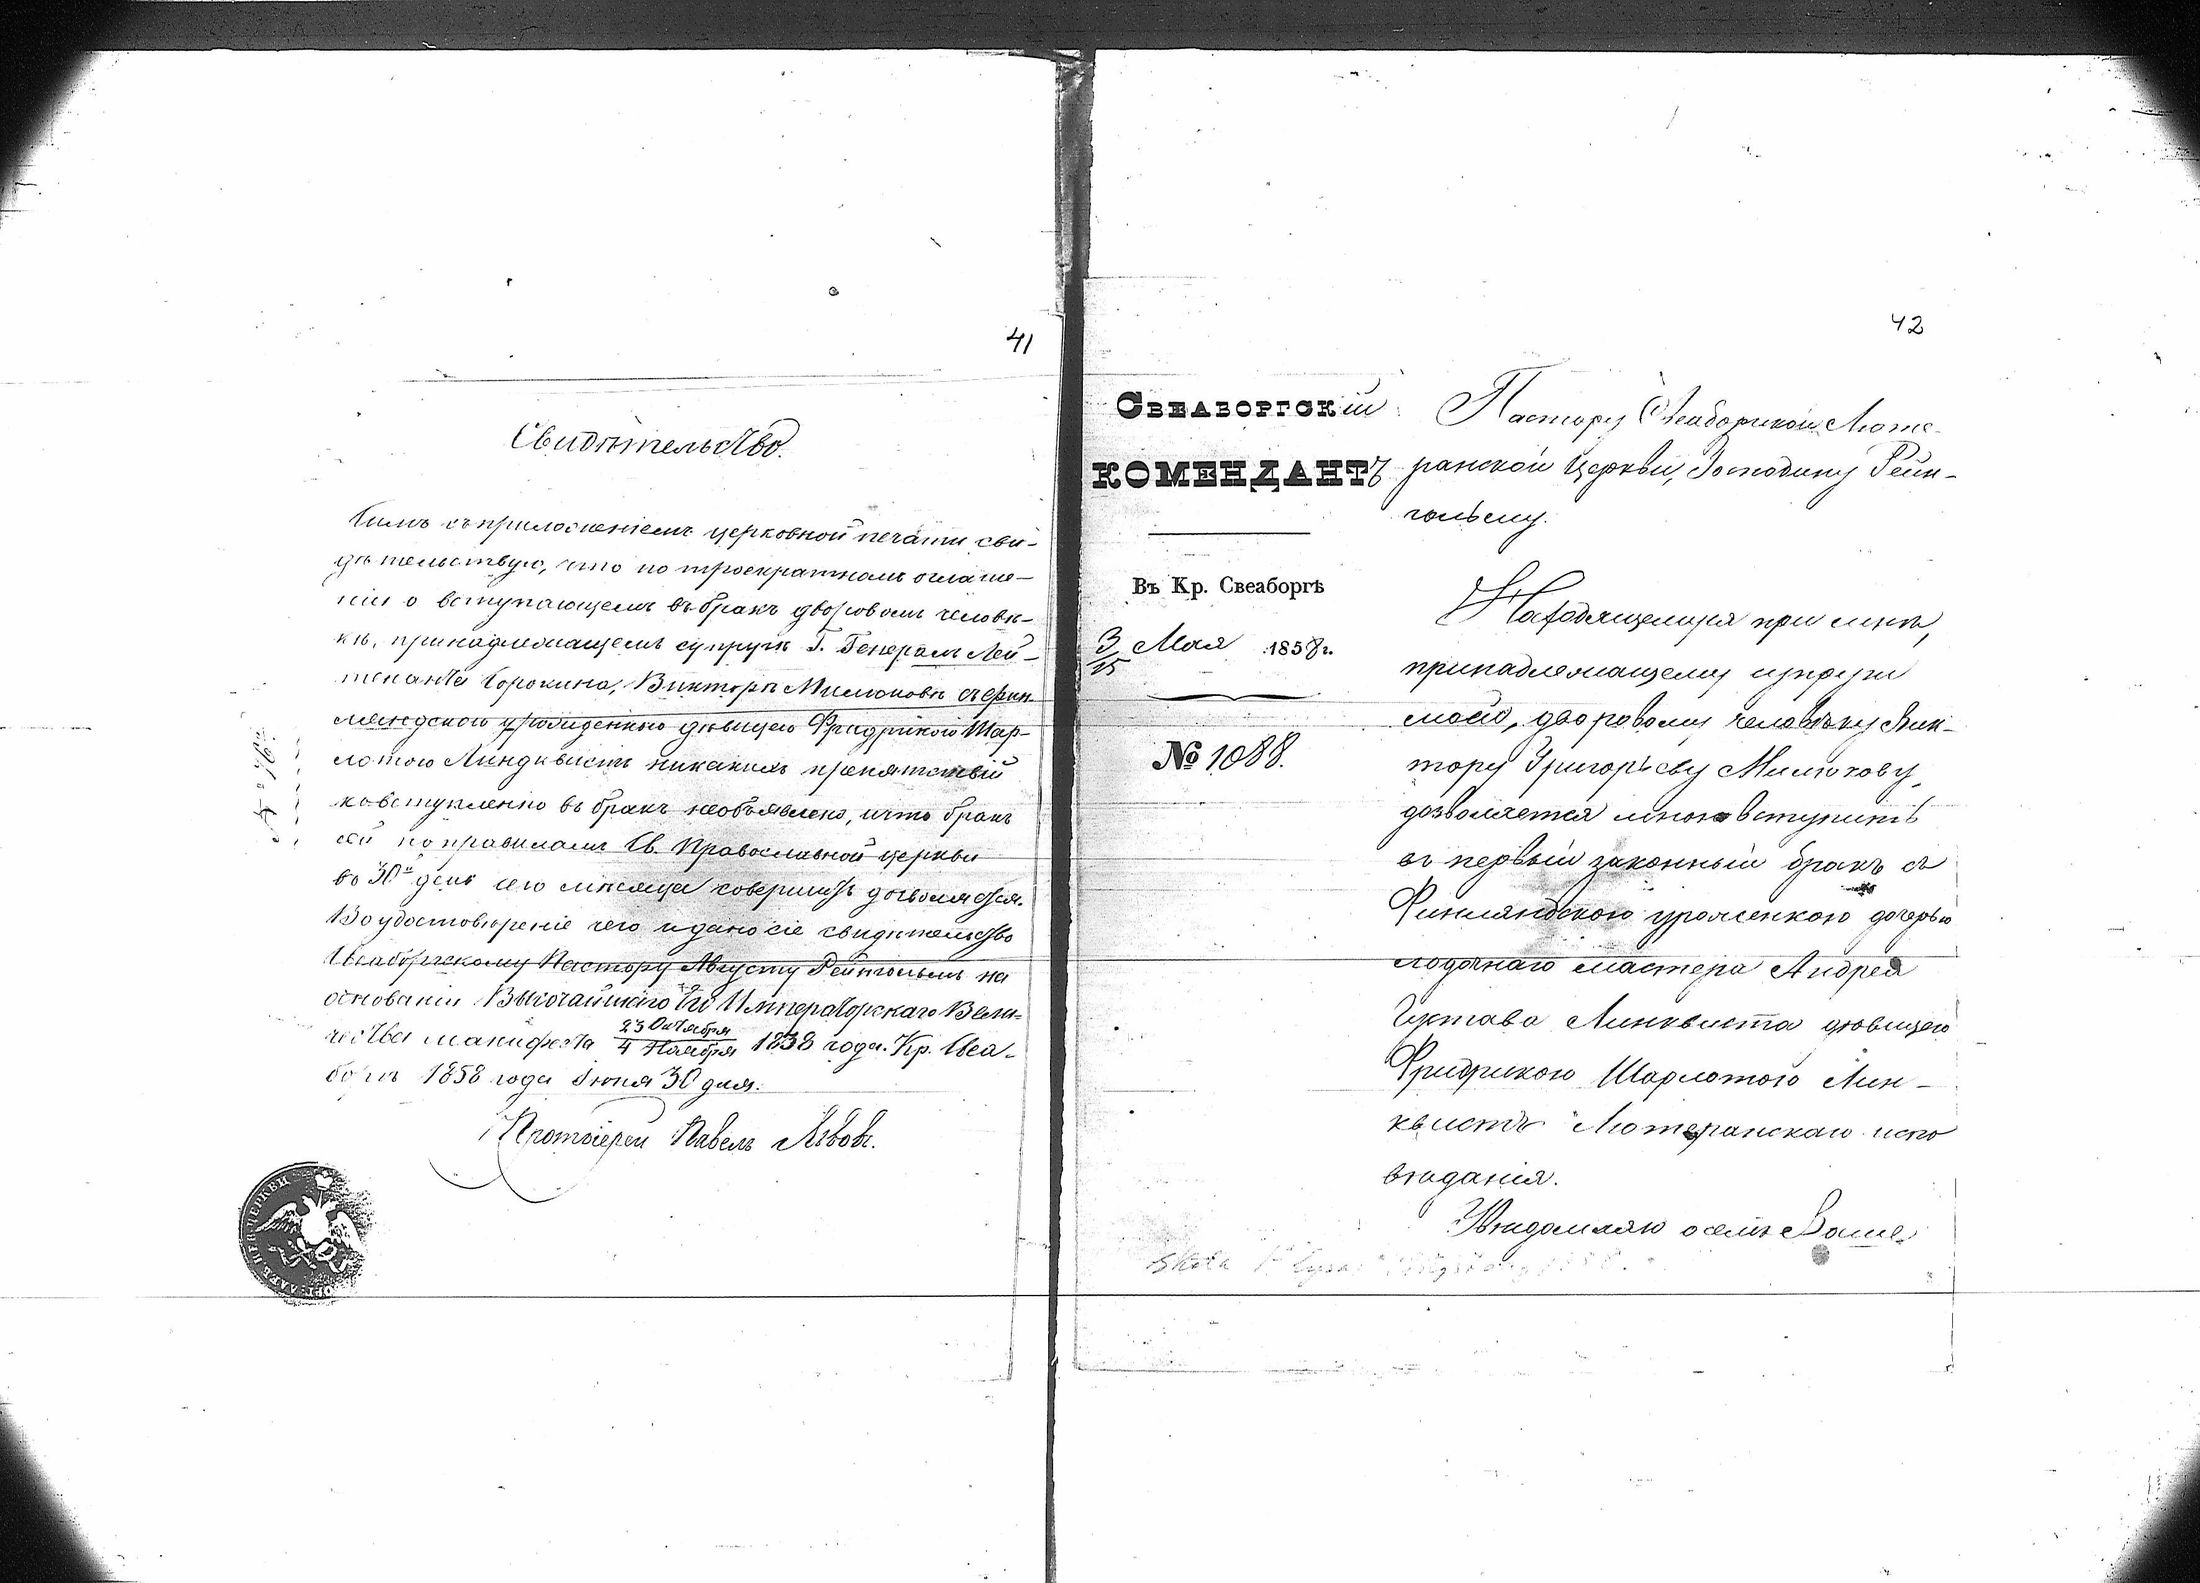 41
Свидѣтельство.
Симъ съ приложеніемъ церковной печати сви-
дѣтельствую, что по троекратномъ оглаше-
ніи о вступающемъ въ бракъ дворовомъ человѣ-
кѣ, принадлежащемъ супругѣ Г. Генералъ Лей-
тенанта Сорокина, Викторѣ Милюковѣ съ фин-
ляндскою уроженкою дѣвицею Фридрикою Шар-
лотою Линдквистъ никакихъ препятствій
ко вступленію въ бракъ необъявлено, и что бракъ
сей по правиламъ Св. Православной церкви
въ 30й день сего мѣсяца совершить дозволяется.
Во удостовѣреніе чего и дано сіе свидѣтельство
Свеаборгскому Пастору Августу Рейнгольмъ на
основаніи Высочайшаго Его Императорскаго Вели-
чества манифеста 23 Октября / 4 Ноября 1838 года. Кр. Свеа-
боргъ 1858 года Іюня 30 дня.
Протоіерей Павелъ Львовъ.
42
СВЕАБОРГСКІЙ
КОМЕНДАНТЪ
Въ Кр. Свеаборгѣ
3/15 Мая 1858 г.
№ 1088.
Пастору Свеаборгской Люте-
ранской Церкви, Господину Рейн-
гольму.
Находящемуся при мнѣ,
принадлежащему супругѣ
моей, дворовому человѣку Вик-
тору Григорьеву Милюкову,
дозволяется мною вступить
въ первый законный бракъ съ
Финляндскою уроженкою дочерью
лодочнаго мастера Андрея
Густава Линквиста дѣвицею
Фридрикою Шарлотою Лин-
квистъ Лютеранскаго испо
вѣданія.
Увѣдомляю о семъ Ваше